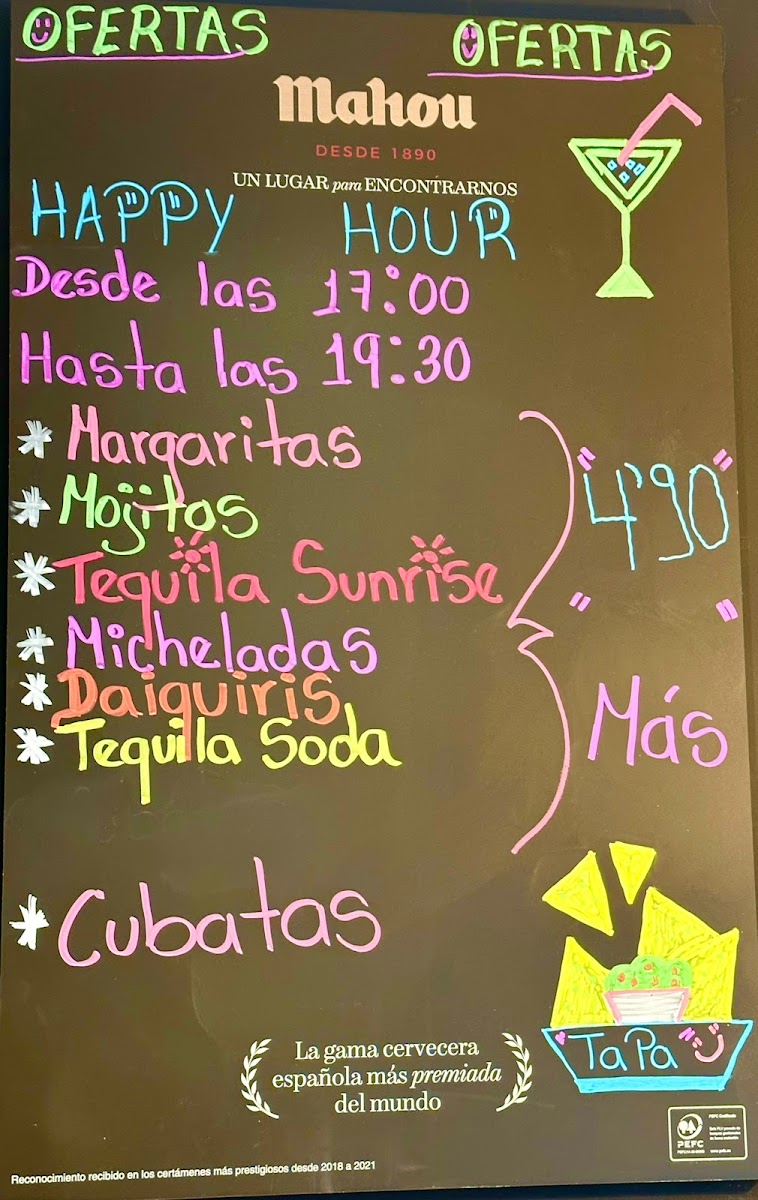 OFERTAS OFERTAS
Mahou
DESDE 1890
UN LUGAR para ENCONTRARNOS
HAPPY HOUR
Desde las 17:00
Hasta las 19:30
* Margaritas
* Mojitos
* Tequila Sunrise
* Micheladas
* Daiquiris
* Tequilla Soda
"4'90"
" "
Más
* Cubatas
TaPa
La gama cervecera
española más premiada
del mundo
PEFC
Reconocimiento recibido en los certámenes más prestigiosos desde 2018 a 2021